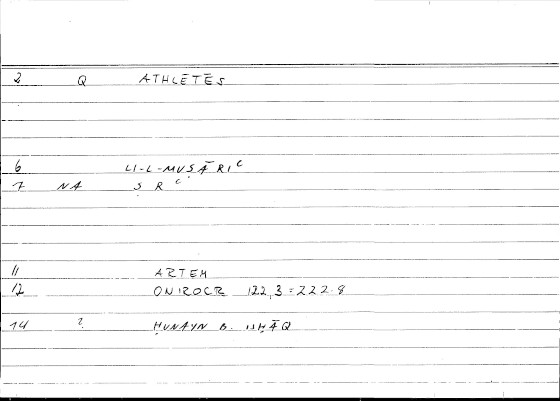 2 Q ATHLĒTĒS
6 LI-L-MUṢĀRIʿ
7 NA Ṣ R ʿ
11 ARTEM
12 ONIROCR 122,3 = 222.8
14 ? ḤUNAYN B. ISḤĀQ